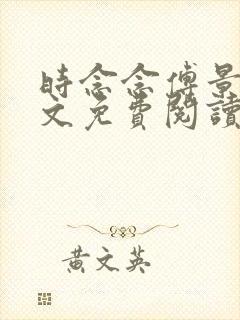 時念念傅景
文免費閱讀
黃文英